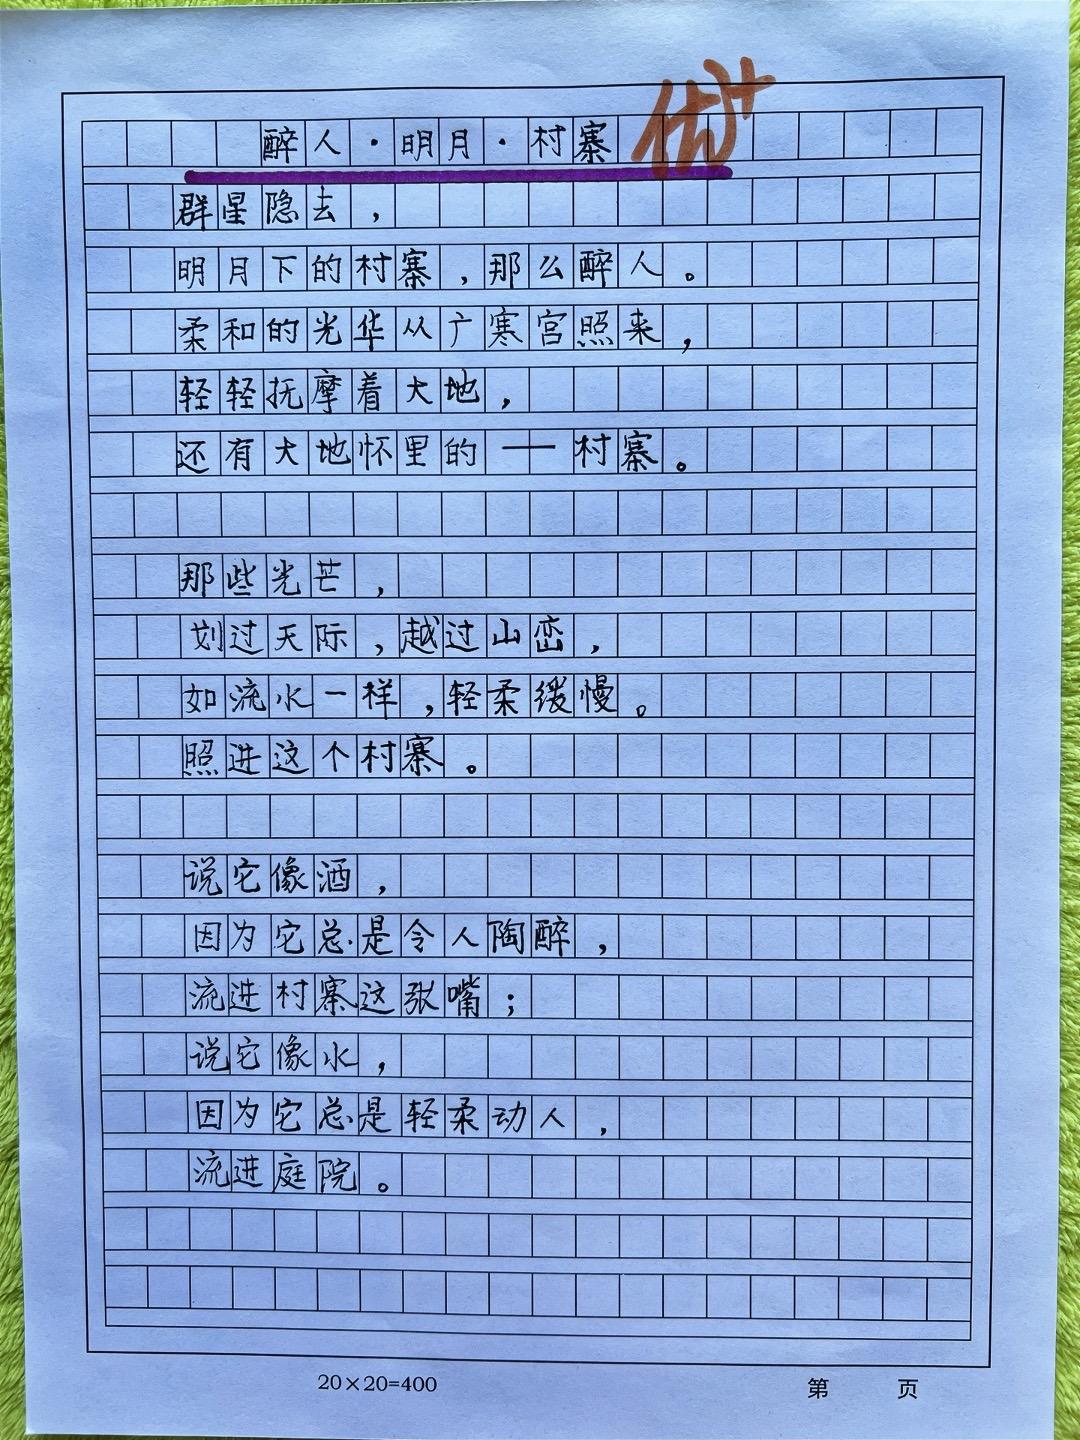 醉人·明月·村寨
优+
群星隐去，
明月下的村寨，那么醉人。
柔和的光华从广寒宫照来，
轻轻抚摩着大地，
还有大地怀里的——村寨。
那些光芒，
划过天际，越过山峦，
如流水一样，轻柔缓慢。
照进这个村寨。
说它像酒，
因为它总是令人陶醉，
流进村寨这张嘴；
说它像水，
因为它总是轻柔动人，
流进庭院。
20×20=400
第 页